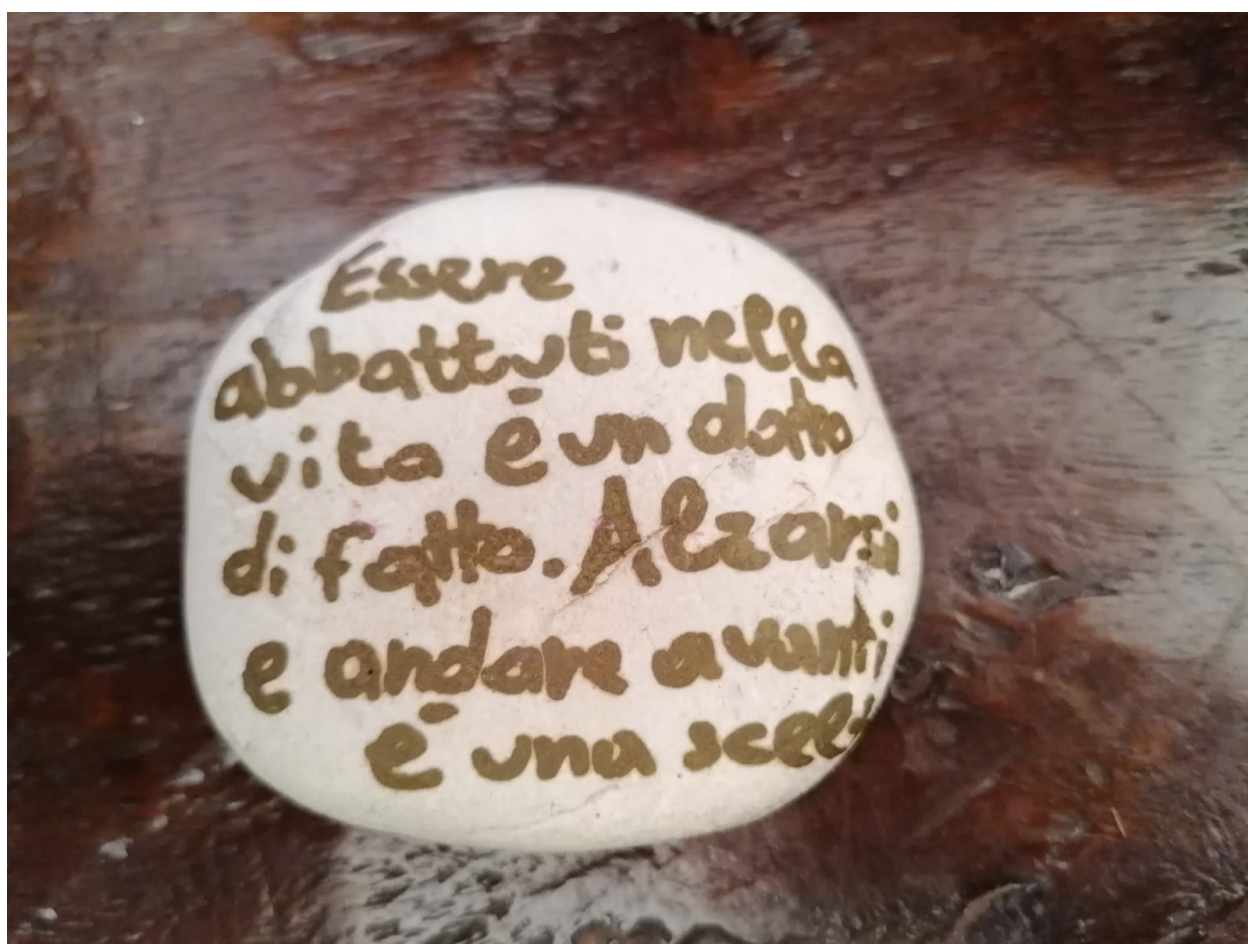 Essere
abbattuti nella
vita è un datto
di fatto. Alzarsi
e andare avanti
è una